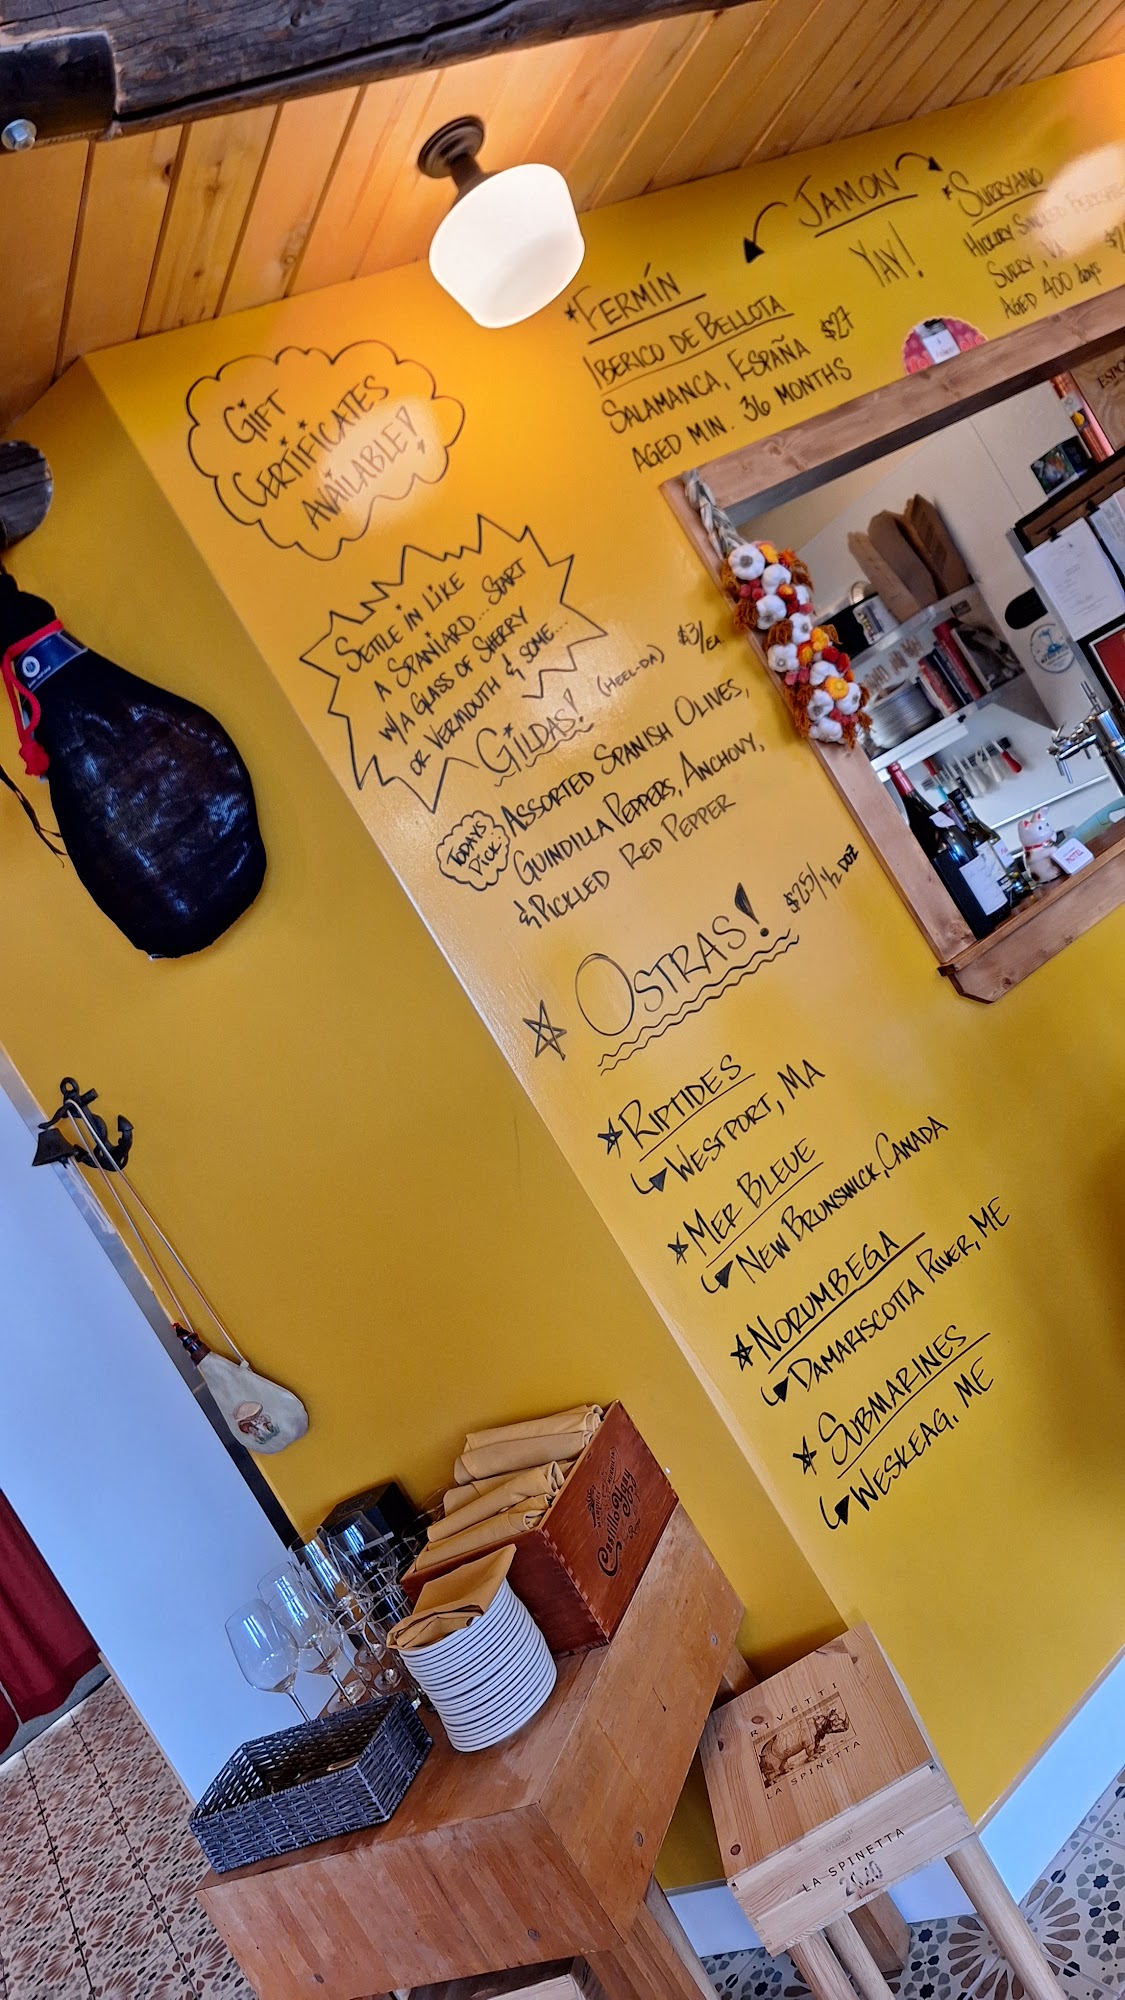 JAMON
YAY!
*FERMÍN
IBERICO DE BELLOTA
SALAMANCA, ESPAÑA $27
AGED MIN. 36 MONTHS
*SURRYANO
HICKORY SMOKED
SURRY, VA
AGED 400 days
GIFT
CERTIFICATES
AVAILABLE!
SETTLE IN LIKE
A SPANIARD... START
W/A GLASS OF SHERRY
OR VERMOUTH & SOME...
GILDAS! (HEEL-DA) $3/EA
TODAYS
PICK:
ASSORTED SPANISH OLIVES,
GUINDILLA PEPPERS, ANCHOVY,
& PICKLED RED PEPPER
OSTRAS! $25/½ DOZ
RIPTIDES
WESTPORT, MA
MER BLEUE
NEW BRUNSWICK, CANADA
NORUMBEGA
DAMARISCOTTA RIVER, ME
SUBMARINES
WESKEAG, ME
Castillo Ygay
RIVETTI
LA SPINETTA
LA SPINETTA